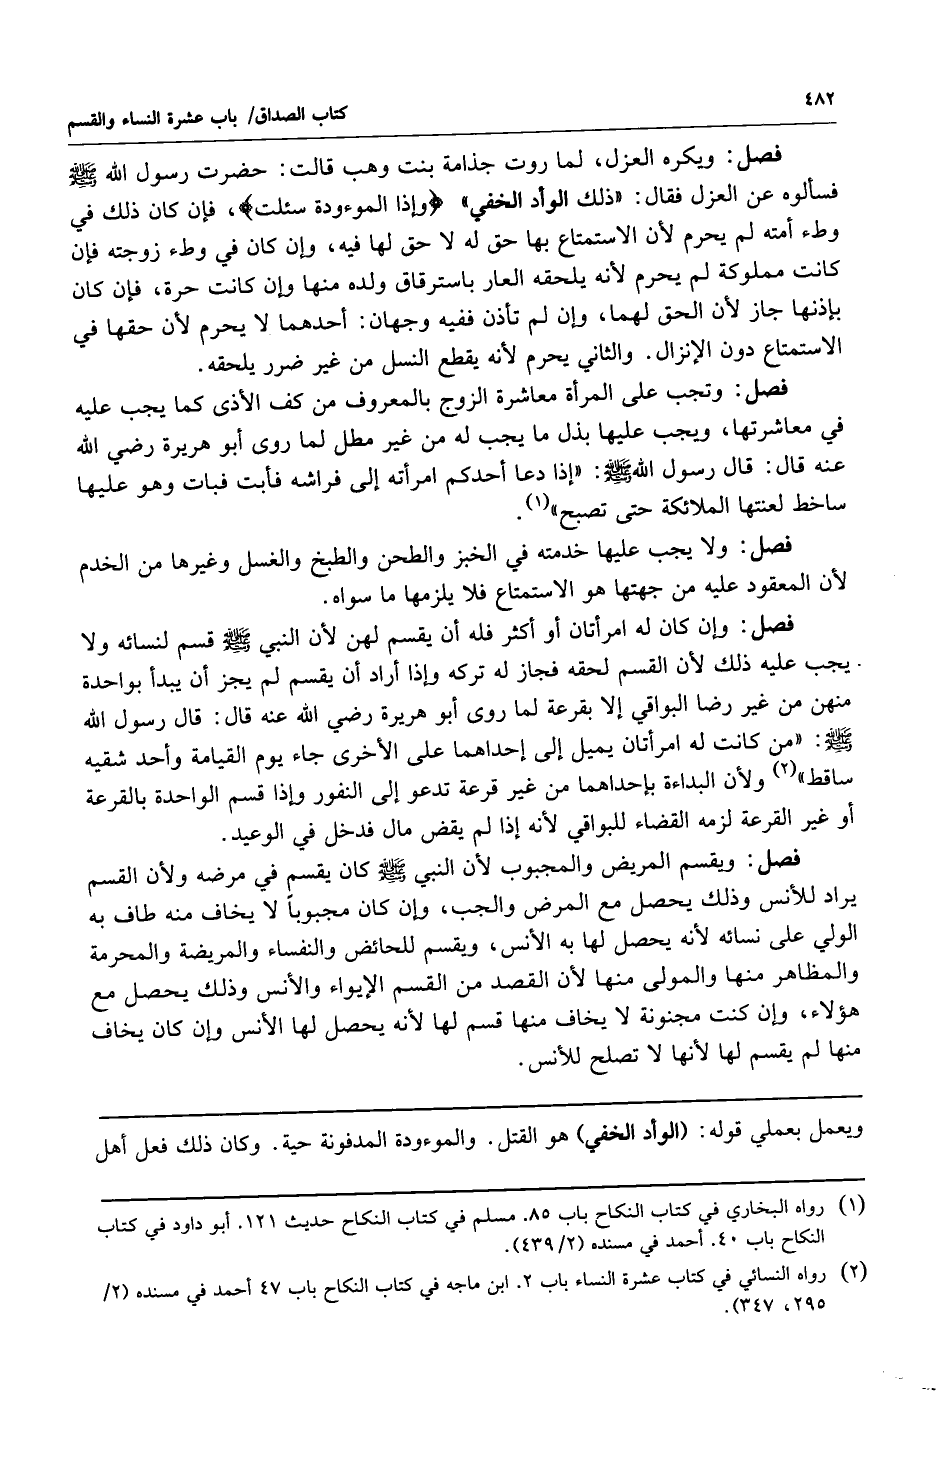 ٤٨٢
كتاب الصداق/ باب عشرة النساء والقسم
فصل: ويكره العزل، لما روت جذامة بنت وهب قالت: حضرت رسول الله ﷺ
فسألوه عن العزل فقال: «ذلك الوأد الخفي» ﴿وإذا الموءودة سئلت﴾، فإن كان ذلك في
وطء أمته لم يحرم لأن الاستمتاع بها حق له لا حق لها فيه، وإن كان في وطء زوجته فإن
كانت مملوكة لم يحرم لأنه يلحقه العار باسترقاق ولده منها وإن كانت حرة، فإن كان
بإذنها جاز لأن الحق لهما، وإن لم تأذن ففيه وجهان: أحدهما لا يحرم لأن حقها في
الاستمتاع دون الإنزال. والثاني يحرم لأنه يقطع النسل من غير ضرر يلحقه.
فصل: وتجب على المرأة معاشرة الزوج بالمعروف من كف الأذى كما يجب عليه
في معاشرتها، ويجب عليها بذل ما يجب له من غير مطل لما روى أبو هريرة رضي الله
عنه قال: قال رسول الله ﷺ: «إذا دعا أحدكم امرأته إلى فراشه فأبت فبات وهو عليها
ساخط لعنتها الملائكة حتى تصبح»(١).
فصل: ولا يجب عليها خدمته في الخبز والطحن والطبخ والغسل وغيرها من الخدم
لأن المعقود عليه من جهتها هو الاستمتاع فلا يلزمها ما سواه.
فصل: وإن كان له امرأتان أو أكثر فله أن يقسم لهن لأن النبي ﷺ قسم لنسائه ولا
يجب عليه ذلك لأن القسم لحقه فجاز له تركه وإذا أراد أن يقسم لم يجز أن يبدأ بواحدة
منهن من غير رضا البواقي إلا بقرعة لما روى أبو هريرة رضي الله عنه قال: قال رسول الله
ﷺ: «من كانت له امرأتان يميل إلى إحداهما على الأخرى جاء يوم القيامة وأحد شقيه
ساقط»(٢) ولأن البداءة بإحداهما من غير قرعة تدعو إلى النفور وإذا قسم الواحدة بالقرعة
أو غير القرعة لزمه القضاء للبواقي لأنه إذا لم يقض مال فدخل في الوعيد.
فصل: ويقسم المريض والمجبوب لأن النبي ﷺ كان يقسم في مرضه ولأن القسم
يراد للأنس وذلك يحصل مع المرض والجب، وإن كان مجبوباً لا يخاف منه طاف به
الولي على نسائه لأنه يحصل لها به الأنس، ويقسم للحائض والنفساء والمريضة والمحرمة
والمظاهر منها والمولى منها لأن القصد من القسم الإيواء والأنس وذلك يحصل مع
هؤلاء، وإن كنت مجنونة لا يخاف منها قسم لها لأنه يحصل لها الأنس وإن كان يخاف
منها لم يقسم لها لأنها لا تصلح للأنس.
ويعمل بعملي قوله: (الوأد الخفي) هو القتل. والموءودة المدفونة حية. وكان ذلك فعل أهل
(١) رواه البخاري في كتاب النكاح باب ٨٥. مسلم في كتاب النكاح حديث ١٢١. أبو داود في كتاب
النكاح باب ٤٠. أحمد في مسنده (٤٣٩/٢).
(٢) رواه النسائي في كتاب عشرة النساء باب ٢. ابن ماجه في كتاب النكاح باب ٤٧ أحمد في مسنده (٢/
٢٩٥، ٣٤٧).